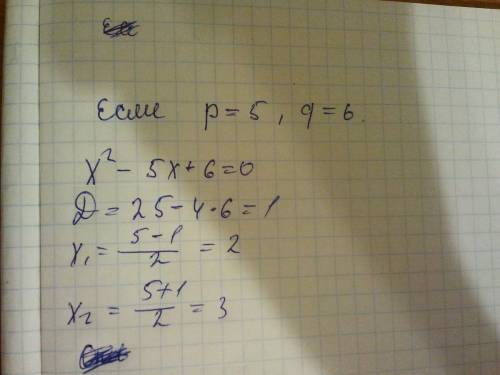 Если p = 5, q = 6.
x² - 5x + 6 = 0
D = 25 - 4 · 6 = 1
x₁ = (5 - 1)/2 = 2
x₂ = (5 + 1)/2 = 3